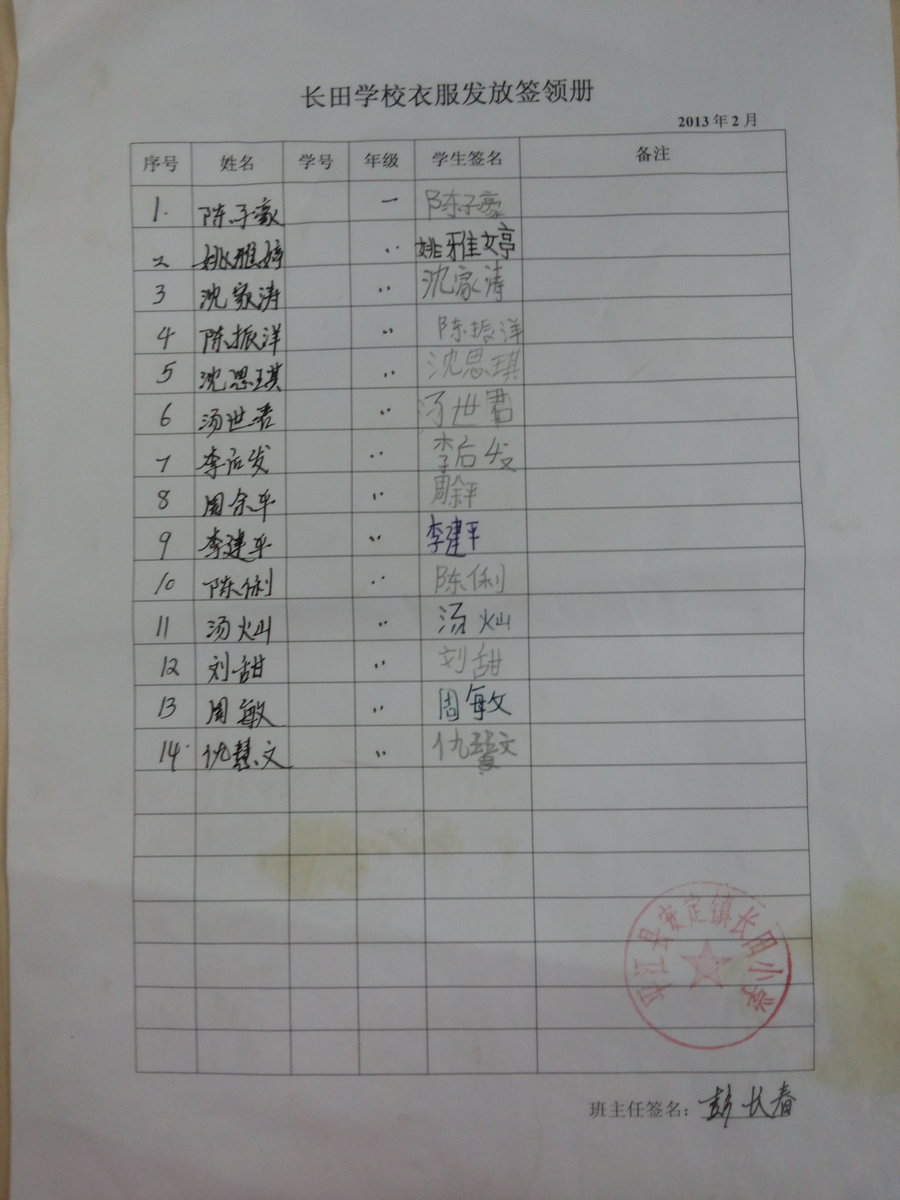 长田学校衣服发放签领册
2013年2月
序号 姓名 学号 年级 学生签名 备注
1. 陈子豪 一 陈子豪
2 姚雅婷 〃 姚雅婷
3 沈家涛 〃 沈家涛
4 陈振洋 〃 陈振洋
5 沈思琪 〃 沈思琪
6 汤世君 〃 汤世君
7 李后发 〃 李后发
8 周余平 〃 周余平
9 李建平 〃 李建平
10 陈俐 〃 陈俐
11 汤灿 〃 汤灿
12 刘甜 〃 刘甜
13 周敏 〃 周敏
14. 仇慧文 〃 仇慧文
平江县安定镇长田小学
班主任签名：彭长春